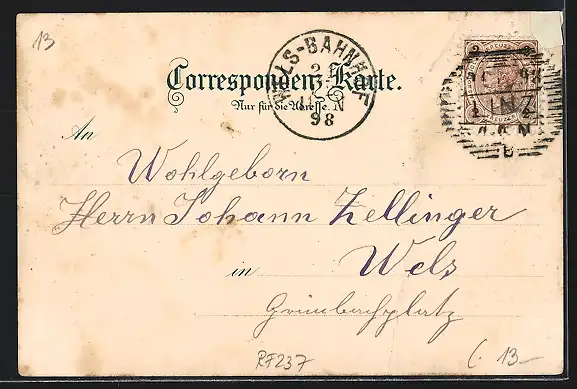 13
Correspondenz-Karte.
Nur für die Adresse.
WELS-BAHNHOF
98
2 2
98
LINZ
An
Wohlgeborn
Herrn Johann Zellinger
in Wels
Grünbachplatz
RF237
13-